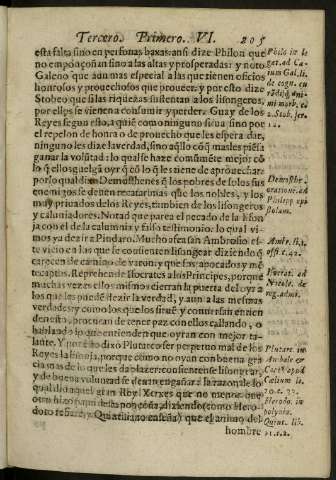 Tercero. Primero. VI. 205
esta falta sino en personas baxas: ansi dize Philon que
no emponçoñan sino a las altas y prosperadas: y noto
Galeno que aun mas especial a las que tienen oficios
honrosos y prouechosos que proueer: y por esto dize
Stobeo que si las riquezas sustentan a los lisongeros,
por ellos se vienen a consumir y perder. Guay de los
Reyes segun esto, a quien como ninguno sirua sino por
el repelon de honra o de prouecho que les espera dar,
ninguno les dize la verdad, sino aq̃llo cõ q̃ mas les piẽsa
ganar la volũtad: lo qual se haze comũmẽte mejor cõ
lo q̃ ellos huelgã oyr q̃ cõ lo q̃ les tiene de aprouechar:
por lo qual dixo Demosthenes q̃ los pobres de solos sus
enemigos se deuen recatar mas que los nobles, y los
muy priuados de los Reyes, tambien de los lisongeros
y caluniadores. Notad que parea el pecado de la lison
ja con el de la calumnia y falso testimonio: lo qual vi-
mos ya dezir a Pindaro. Mucho afea san Ambrosio el
vicio en los que se consienten lisongear diziendo q̃
carecen de animo de varon: y que son apocados y mẽ
tecaptos. Reprehende Isocrates a los Principes, porque
muchas vezes ellos mismos cierran la puerta del oyr a
los que les puedẽ dezir la verdad, y aun a las mesmas
verdades: y como los que los siruẽ y conuersan entien
den esto, procuran de tener paz con ellos, callando, o
hablando lo que entienden que oyran con mejor ta-
lante. Y por esto dixo Plutarco ser perpetuo mal de los
Reyes la lisonja, porque como no oyan con buena gra
cia mas de lo que les da plazer:
y de buena voluntad se dexan engañar: a la razon de lo
qual dio aquel gran Rey Xerxes que no menos que
otro hizo
doto testifica, y Quintiliano enseña) que el animo del
hombre
Philo in le
gat. ad Ca-
ium Gal. li.
de cog. cu
rãdisq; ani-
mi morb. et
2. Stob. ser.
12.
Demosthe.
oratione. ad
Philipp. epi
stolam.
Ambr. li. 1.
offi. c. 42.
Isocrat. ad
Nicocl. de
reg. admi.
Plutarc. in
Herodo. in
polymn.
Quint. lib.
11. c. 2.